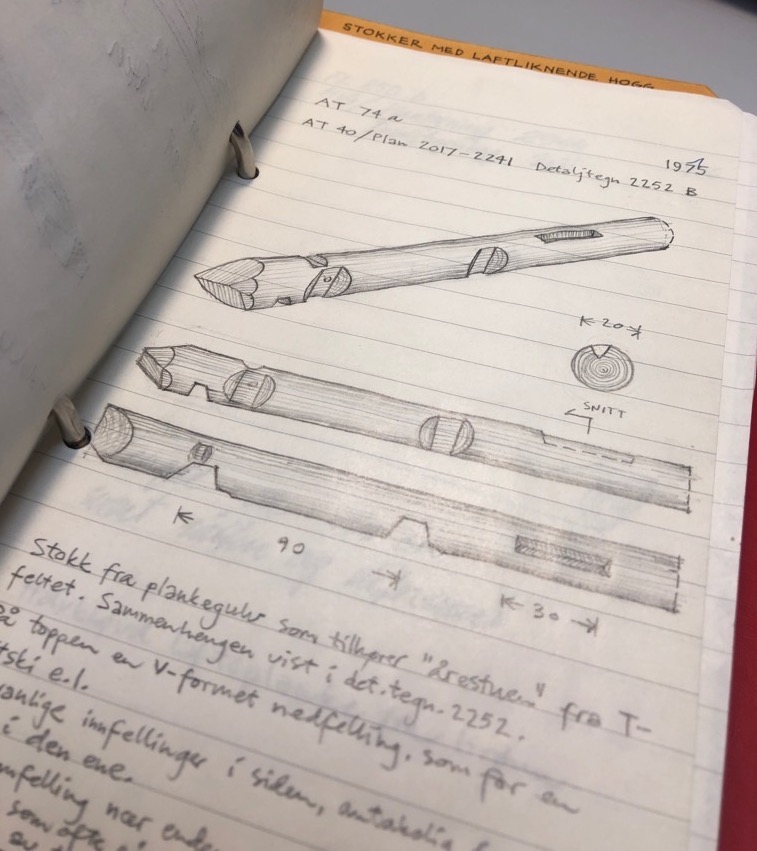 STOKKER MED LAFTLIKNENDE HOGG
AT 74 a
1975
AT 40/Plan 2017-2241 Detaljtegn 2252 B
20
SNITT
90
30
Stokk fra plankegulv som tilhører "årestuen" fra T-
feltet. Sammenhengen vist i det.tegn. 2252.
På toppen en V-formet nedfelling, som for en
e.l.
innfellinger i siden, antakelig
i den ene.
nær
som ofte
av